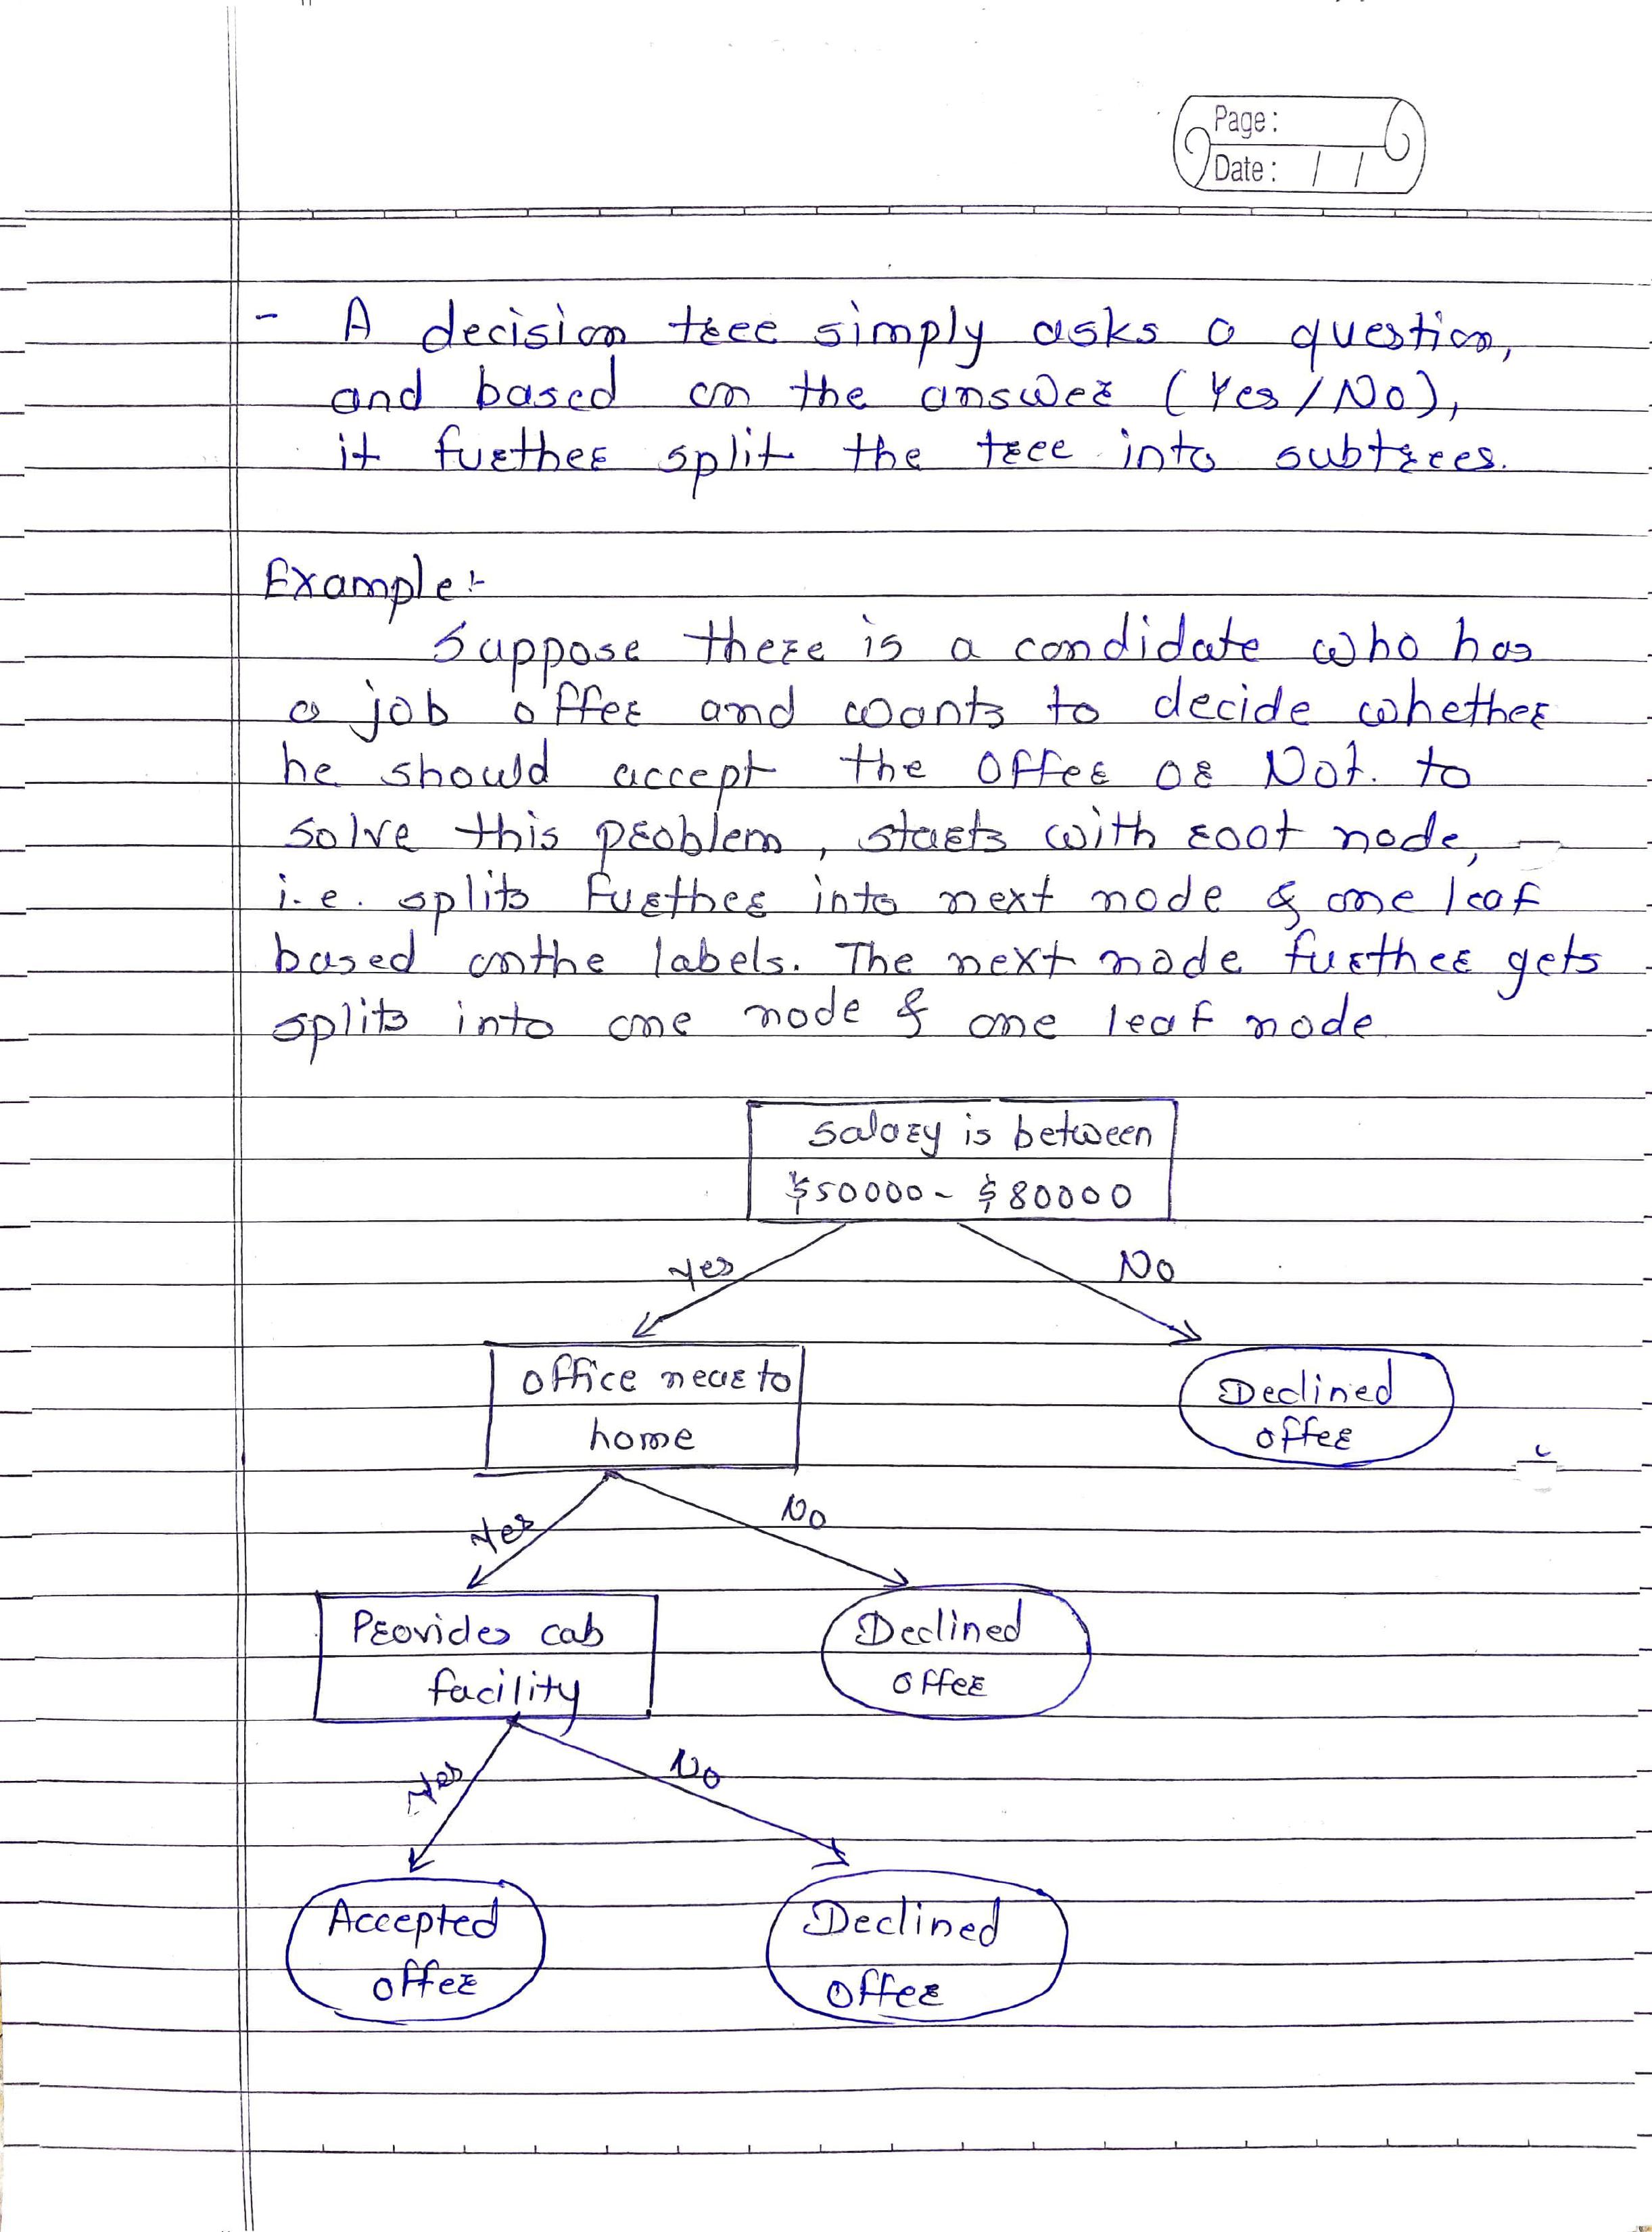 Page :
Date : / /
- A decision tree simply asks a question,
and based on the answer (Yes/No),
it further split the tree into subtrees.
Example:-
Suppose there is a candidate who has
a job offer and wants to decide whether
he should accept the offer or Not. to
solve this problem, starts with root node,
i.e. splits further into next node & one leaf
based on the labels. The next node further gets
splits into one node & one leaf node
Salary is between
$50000 - $80000
Yes No
Office near to
home
Declined
offer
Yes No
Provides cab
facility
Declined
offer
Yes No
Accepted
offer
Declined
offer